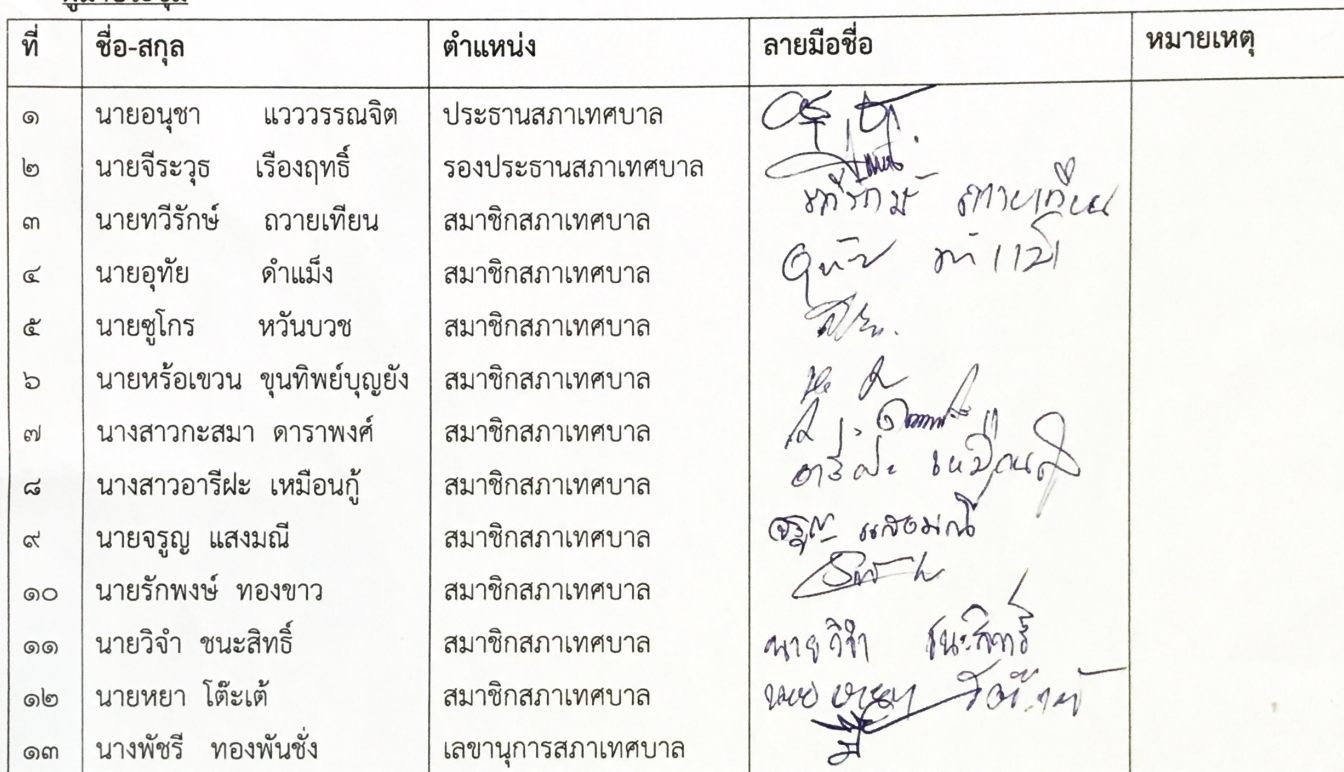 ที่ ชื่อ-สกุล ตำแหน่ง ลายมือชื่อ หมายเหตุ
๑ นายอนุชา แวววรรณจิต ประธานสภาเทศบาล
๒ นายจีระวุธ เรืองฤทธิ์ รองประธานสภาเทศบาล
๓ นายทวีรักษ์ ถวายเทียน สมาชิกสภาเทศบาล ทวีรักษ์ ถวายเทียน
๔ นายอุทัย ดำแม็ง สมาชิกสภาเทศบาล อุทัย
๕ นายซูโกร หวันบวช สมาชิกสภาเทศบาล
๖ นายหร้อเขวน ขุนทิพย์บุญยัง สมาชิกสภาเทศบาล
๗ นางสาวกะสมา ดาราพงศ์ สมาชิกสภาเทศบาล
๘ นางสาวอารีฝะ เหมือนกู้ สมาชิกสภาเทศบาล อารีฝะ เหมือนกู้
๙ นายจรูญ แสงมณี สมาชิกสภาเทศบาล จรูญ แสงมณี
๑๐ นายรักพงษ์ ทองขาว สมาชิกสภาเทศบาล
๑๑ นายวิจำ ชนะสิทธิ์ สมาชิกสภาเทศบาล นายวิจำ ชนะสิทธิ์
๑๒ นายหยา โต๊ะเต้ สมาชิกสภาเทศบาล นายหยา
๑๓ นางพัชรี ทองพันชั่ง เลขานุการสภาเทศบาล